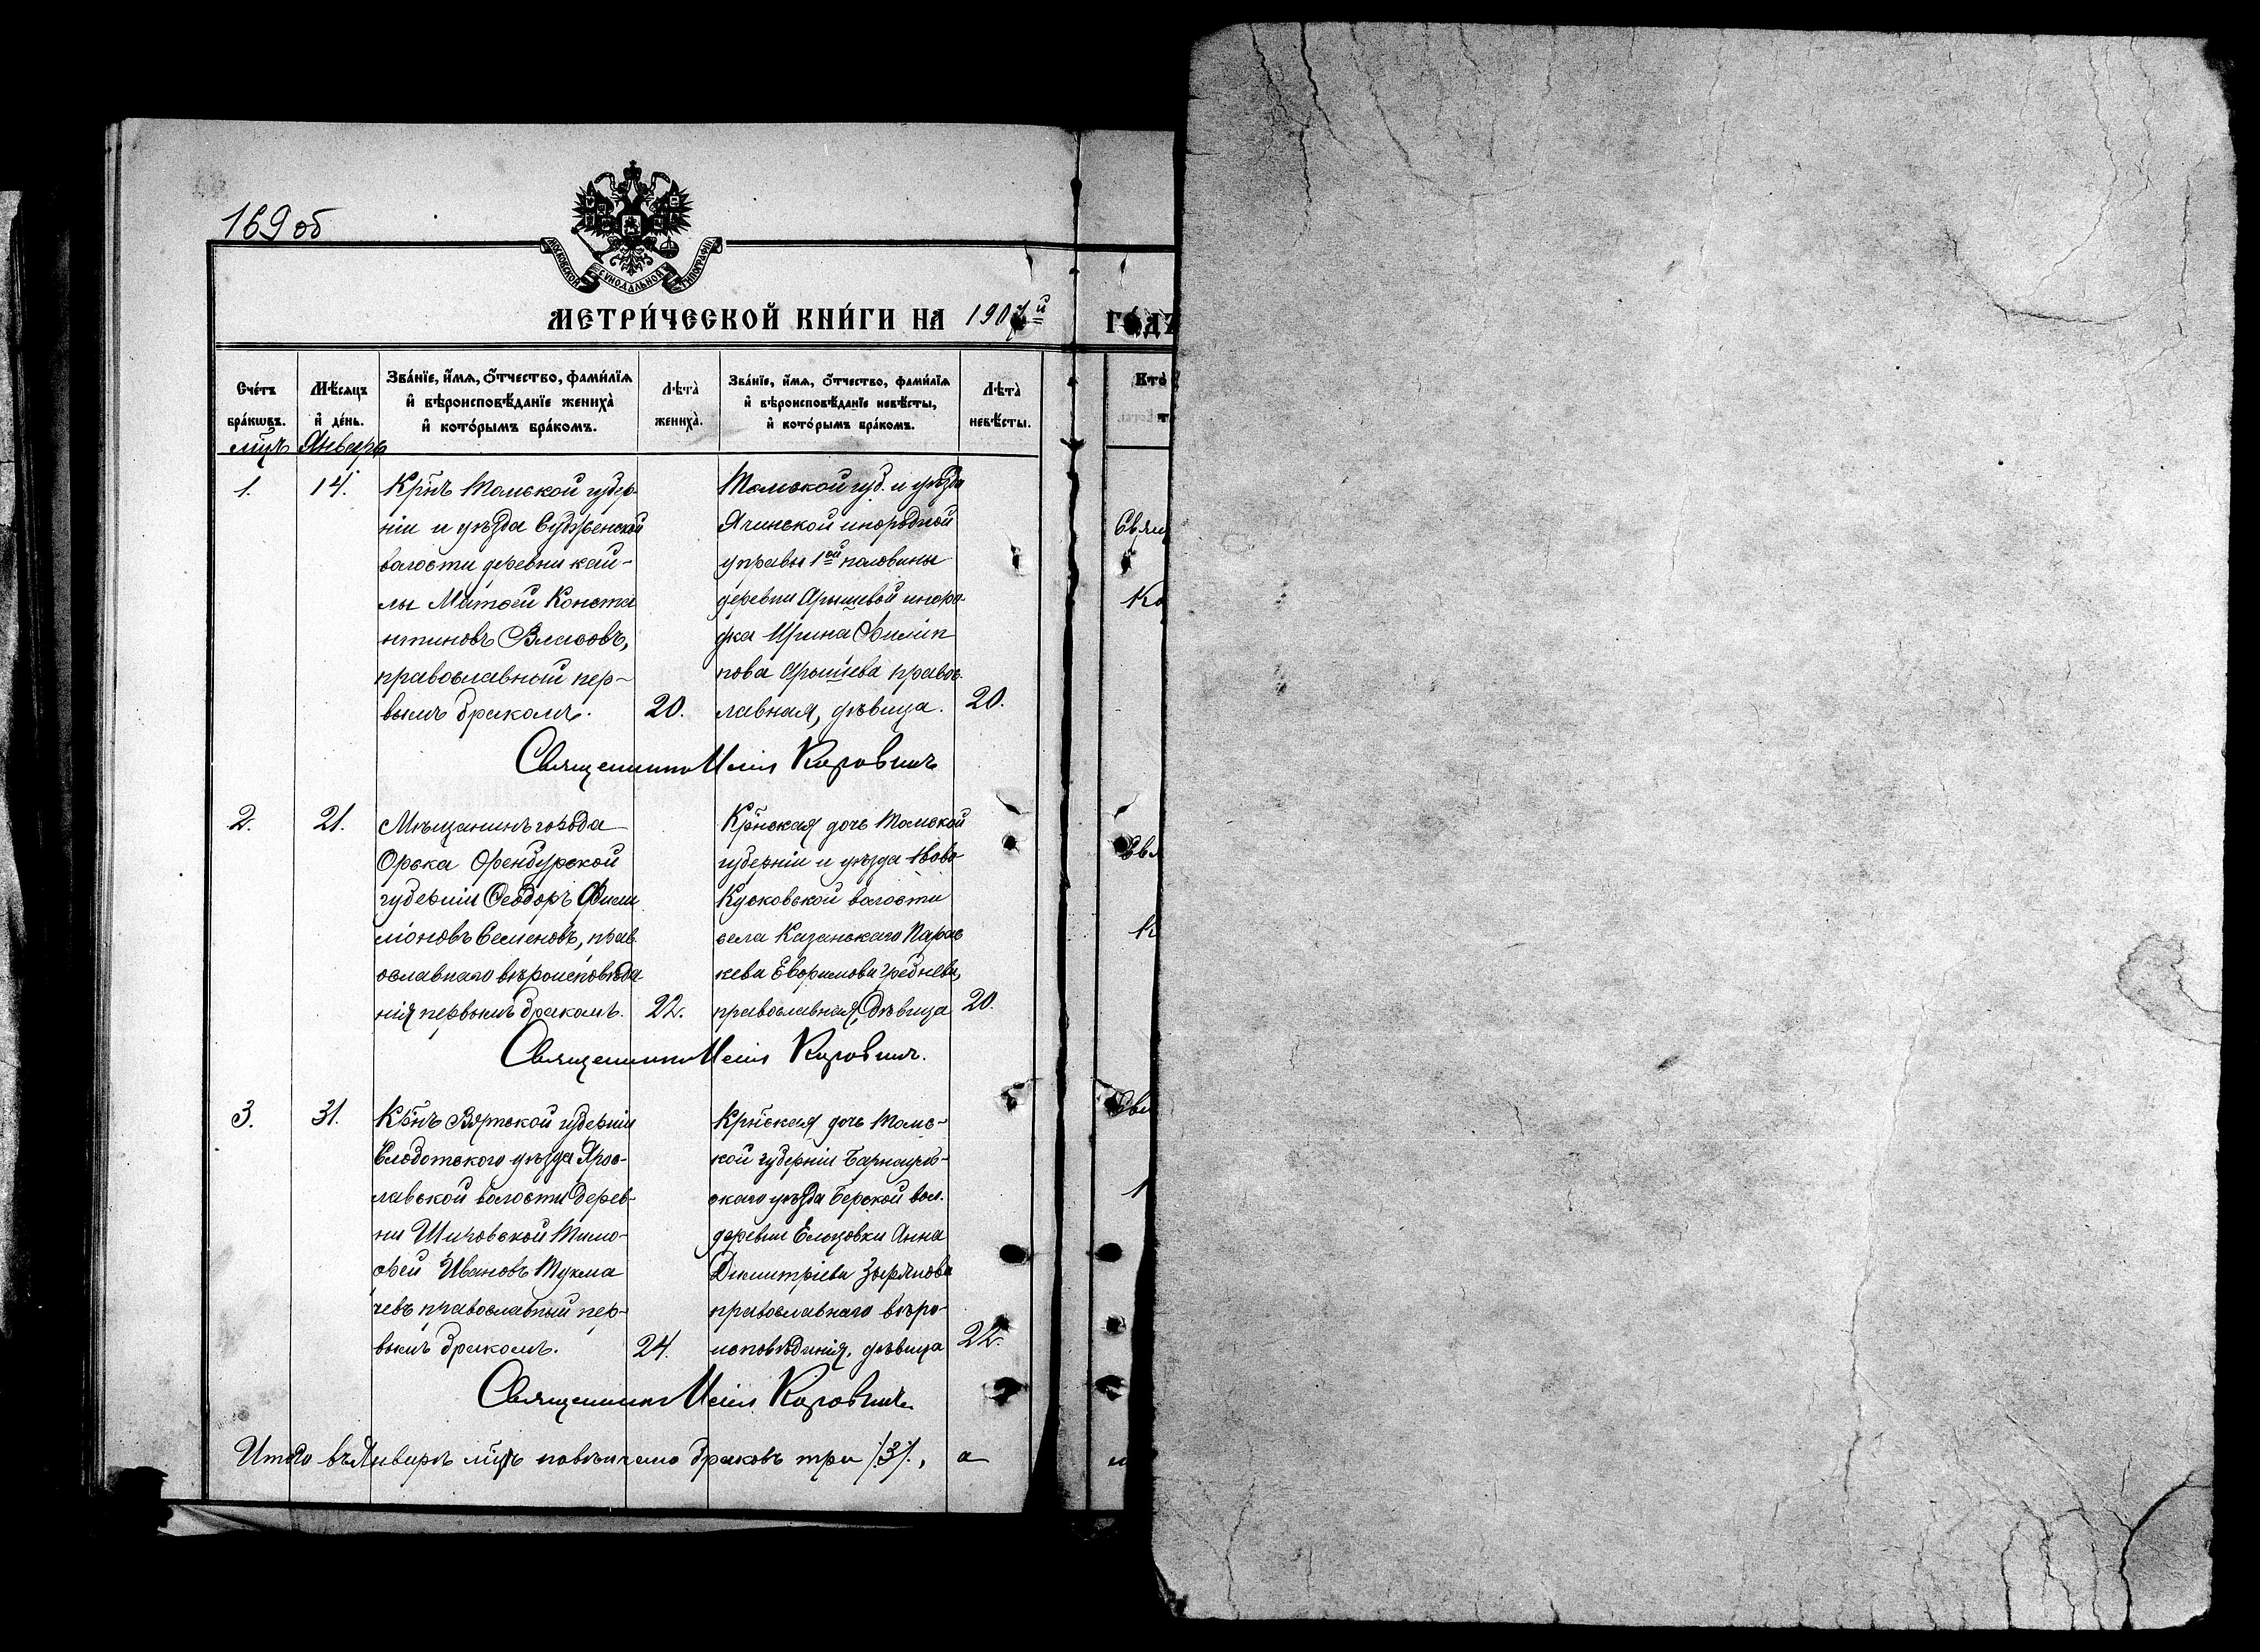 169 об
МОСКОВСКОЙ СѴНОДАЛЬНОЙ ТИПОГРАФІИ
МЕТРИ́ЧЕСКОЙ КНИ́ГИ НА 1907й ГОДЪ
Сче́тъ бра́кωвъ.
Мѣ́сяцъ и҆ де́нь.
Зва́нїе, и҆́мѧ, ѻ҆́тчество, фами́лїѧ
и҆ вѣроисповѣ́данїе жениха̀
и҆ кото́рымъ бра́комъ.
Лѣта̀ жениха̀.
Зва́нїе, и҆́мѧ, ѻ҆́тчество, фами́лїѧ
и҆ вѣроисповѣ́данїе невѣ́сты,
и҆ кото́рымъ бра́комъ.
Лѣта̀ невѣ́сты.
Кто̀
мцъ Январь
1.
14.
Крнъ Томской губер-
ніи и уѣзда Судженской
волости деревни Кай-
лы Матѳей Конста
нтиновъ Власовъ,
православный пер-
вымъ бракомъ.
20.
Томской губ. и уѣзда
Ячинской инородной
управы 1ой половины
деревни Арышевой иноро-
дка Ирина Филип
пова Арышева правос-
лавная, дѣвица.
20.
Священникъ Илія Коровинъ
2.
21.
Мѣщанинъ города
Орска Оренбурской
губерніи Ѳеодоръ Фили
моновъ Семеновъ, прав
ославнаго вѣроисповѣда
нія первымъ бракомъ.
22.
Крнская дочь Томской
губерніи и уѣзда Ново
Кусковской волости
села Казанскаго Парас
кева Евфимова Греднева,
православная, дѣвица
20.
Священникъ Илія Коровинъ.
3.
31.
Крнъ Вятской губерніи
Слободского уѣзда Ярос-
лавской волости дерев-
ни Шиховской Тимо-
ѳей Ивановъ Тукма
чевъ православный пер-
вымъ бракомъ.
24.
Крнская дочь Томс-
кой губерніи Барнауль-
скаго уѣзда Берской вол.
деревни Ельцовки Анна
Димитріева Зырянова
православнаго вѣро-
исповѣданія, дѣвица
22.
Священникъ Илія Коровинъ
Итого въ Январѣ мцѣ повѣнчано браковъ три /3/, а